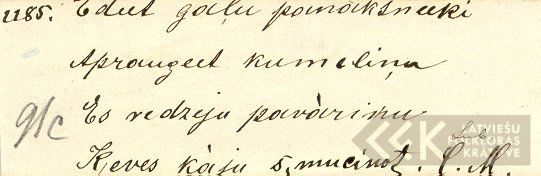 1185. Edut gaļu panāksneeki
Aprauget kumeliņu
91c Es redzeju pavàriņu
Ķeves kàju šmucinot. E. M.
LATVIEŠU FOLKLORAS KRĀTUVE